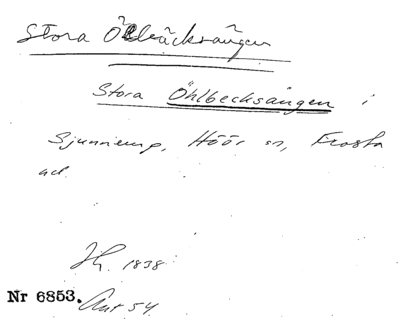 Stora Öhlbäcksängen
Stora Öhlbecksängen i
Sjunnerup, Höör sn, Frosta
hd.
1838
Nr 6853.